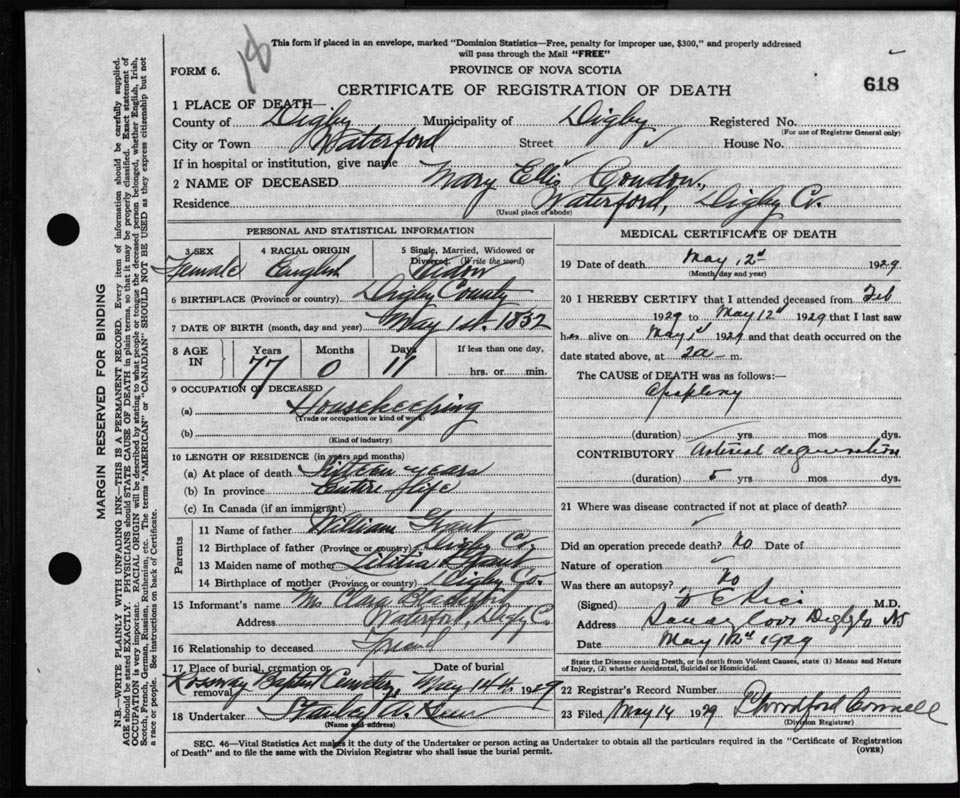 18
This form if placed in an envelope, marked "Dominion Statistics—Free, penalty for improper use, $300," and properly addressed
will pass through the Mail "FREE"
FORM 6.
PROVINCE OF NOVA SCOTIA
618
CERTIFICATE OF REGISTRATION OF DEATH
1 PLACE OF DEATH—
County of Digby Municipality of Digby Registered No.
(For use of Registrar General only)
City or Town Waterford Street House No.
If in hospital or institution, give name
2 NAME OF DECEASED Mary Ellis Condon,
Residence Waterford, Digby Co.
(Usual place of abode)
PERSONAL AND STATISTICAL INFORMATION
3 SEX 4 RACIAL ORIGIN 5 Single, Married, Widowed or
Divorced. (Write the word)
Female English Widow
6 BIRTHPLACE (Province or country) Digby County
7 DATE OF BIRTH (month, day and year) May 1st. 1852
8 AGE IN Years Months Days If less than one day,
77 0 11 hrs. or min.
9 OCCUPATION OF DECEASED
(a) Housekeeping
(Trade or occupation or kind of work)
(b)
(Kind of industry)
10 LENGTH OF RESIDENCE (in years and months)
(a) At place of death years
(b) In province Entire life
(c) In Canada (if an immigrant)
Parents
11 Name of father William Grant
12 Birthplace of father (Province or country) Digby Co.
13 Maiden name of mother
14 Birthplace of mother (Province or country) Digby Co.
15 Informant's name Mrs Clara
Address Waterford, Digby Co
16 Relationship to deceased Friend
17 Place of burial, cremation or removal Date of burial
Rossway Baptist Cemetery, May 14th. 1929
18 Undertaker Stanley A.
(Name and address)
MEDICAL CERTIFICATE OF DEATH
19 Date of death May 12d 1929
(Month, day and year)
20 I HEREBY CERTIFY that I attended deceased from Feb
1929 to May 12d 1929 that I last saw
her alive on May 1929 and that death occurred on the
date stated above, at 2a m.
The CAUSE of DEATH was as follows:—
Apoplexy
(duration) yrs. mos dys.
CONTRIBUTORY Arterial degeneration
(duration) 5 yrs. mos dys.
21 Where was disease contracted if not at place of death?
Did an operation precede death? No Date of
Nature of operation
Was there an autopsy? No
(Signed) M.D.
Address Sandy Cove Digby Co NS
Date May 12d 1929
State the Disease causing Death, or in death from Violent Causes, state (1) Means and Nature
of Injury, (2) whether Accidental, Suicidal or Homicidal.
22 Registrar's Record Number
23 Filed May 14 1929
(Division Registrar)
SEC. 46—Vital Statistics Act makes it the duty of the Undertaker or person acting as Undertaker to obtain all the particulars required in the "Certificate of Registration
of Death" and to file the same with the Division Registrar who shall issue the burial permit.
(OVER)
MARGIN RESERVED FOR BINDING
N.B.—WRITE PLAINLY WITH UNFADING INK—THIS IS A PERMANENT RECORD. Every item of information should be carefully supplied.
AGE should be stated EXACTLY. PHYSICIANS should STATE CAUSE OF DEATH in plain terms, so that it may be properly classified. Exact statement of
OCCUPATION is very important. RACIAL ORIGIN will be described by stating to what people or tongue the deceased person belonged, whether English, Irish,
Scotch, French, German, Russian, Ruthenian, etc. The terms "AMERICAN" or "CANADIAN" SHOULD NOT BE USED as they express citizenship but not
a race or people. See instructions on back of Certificate.